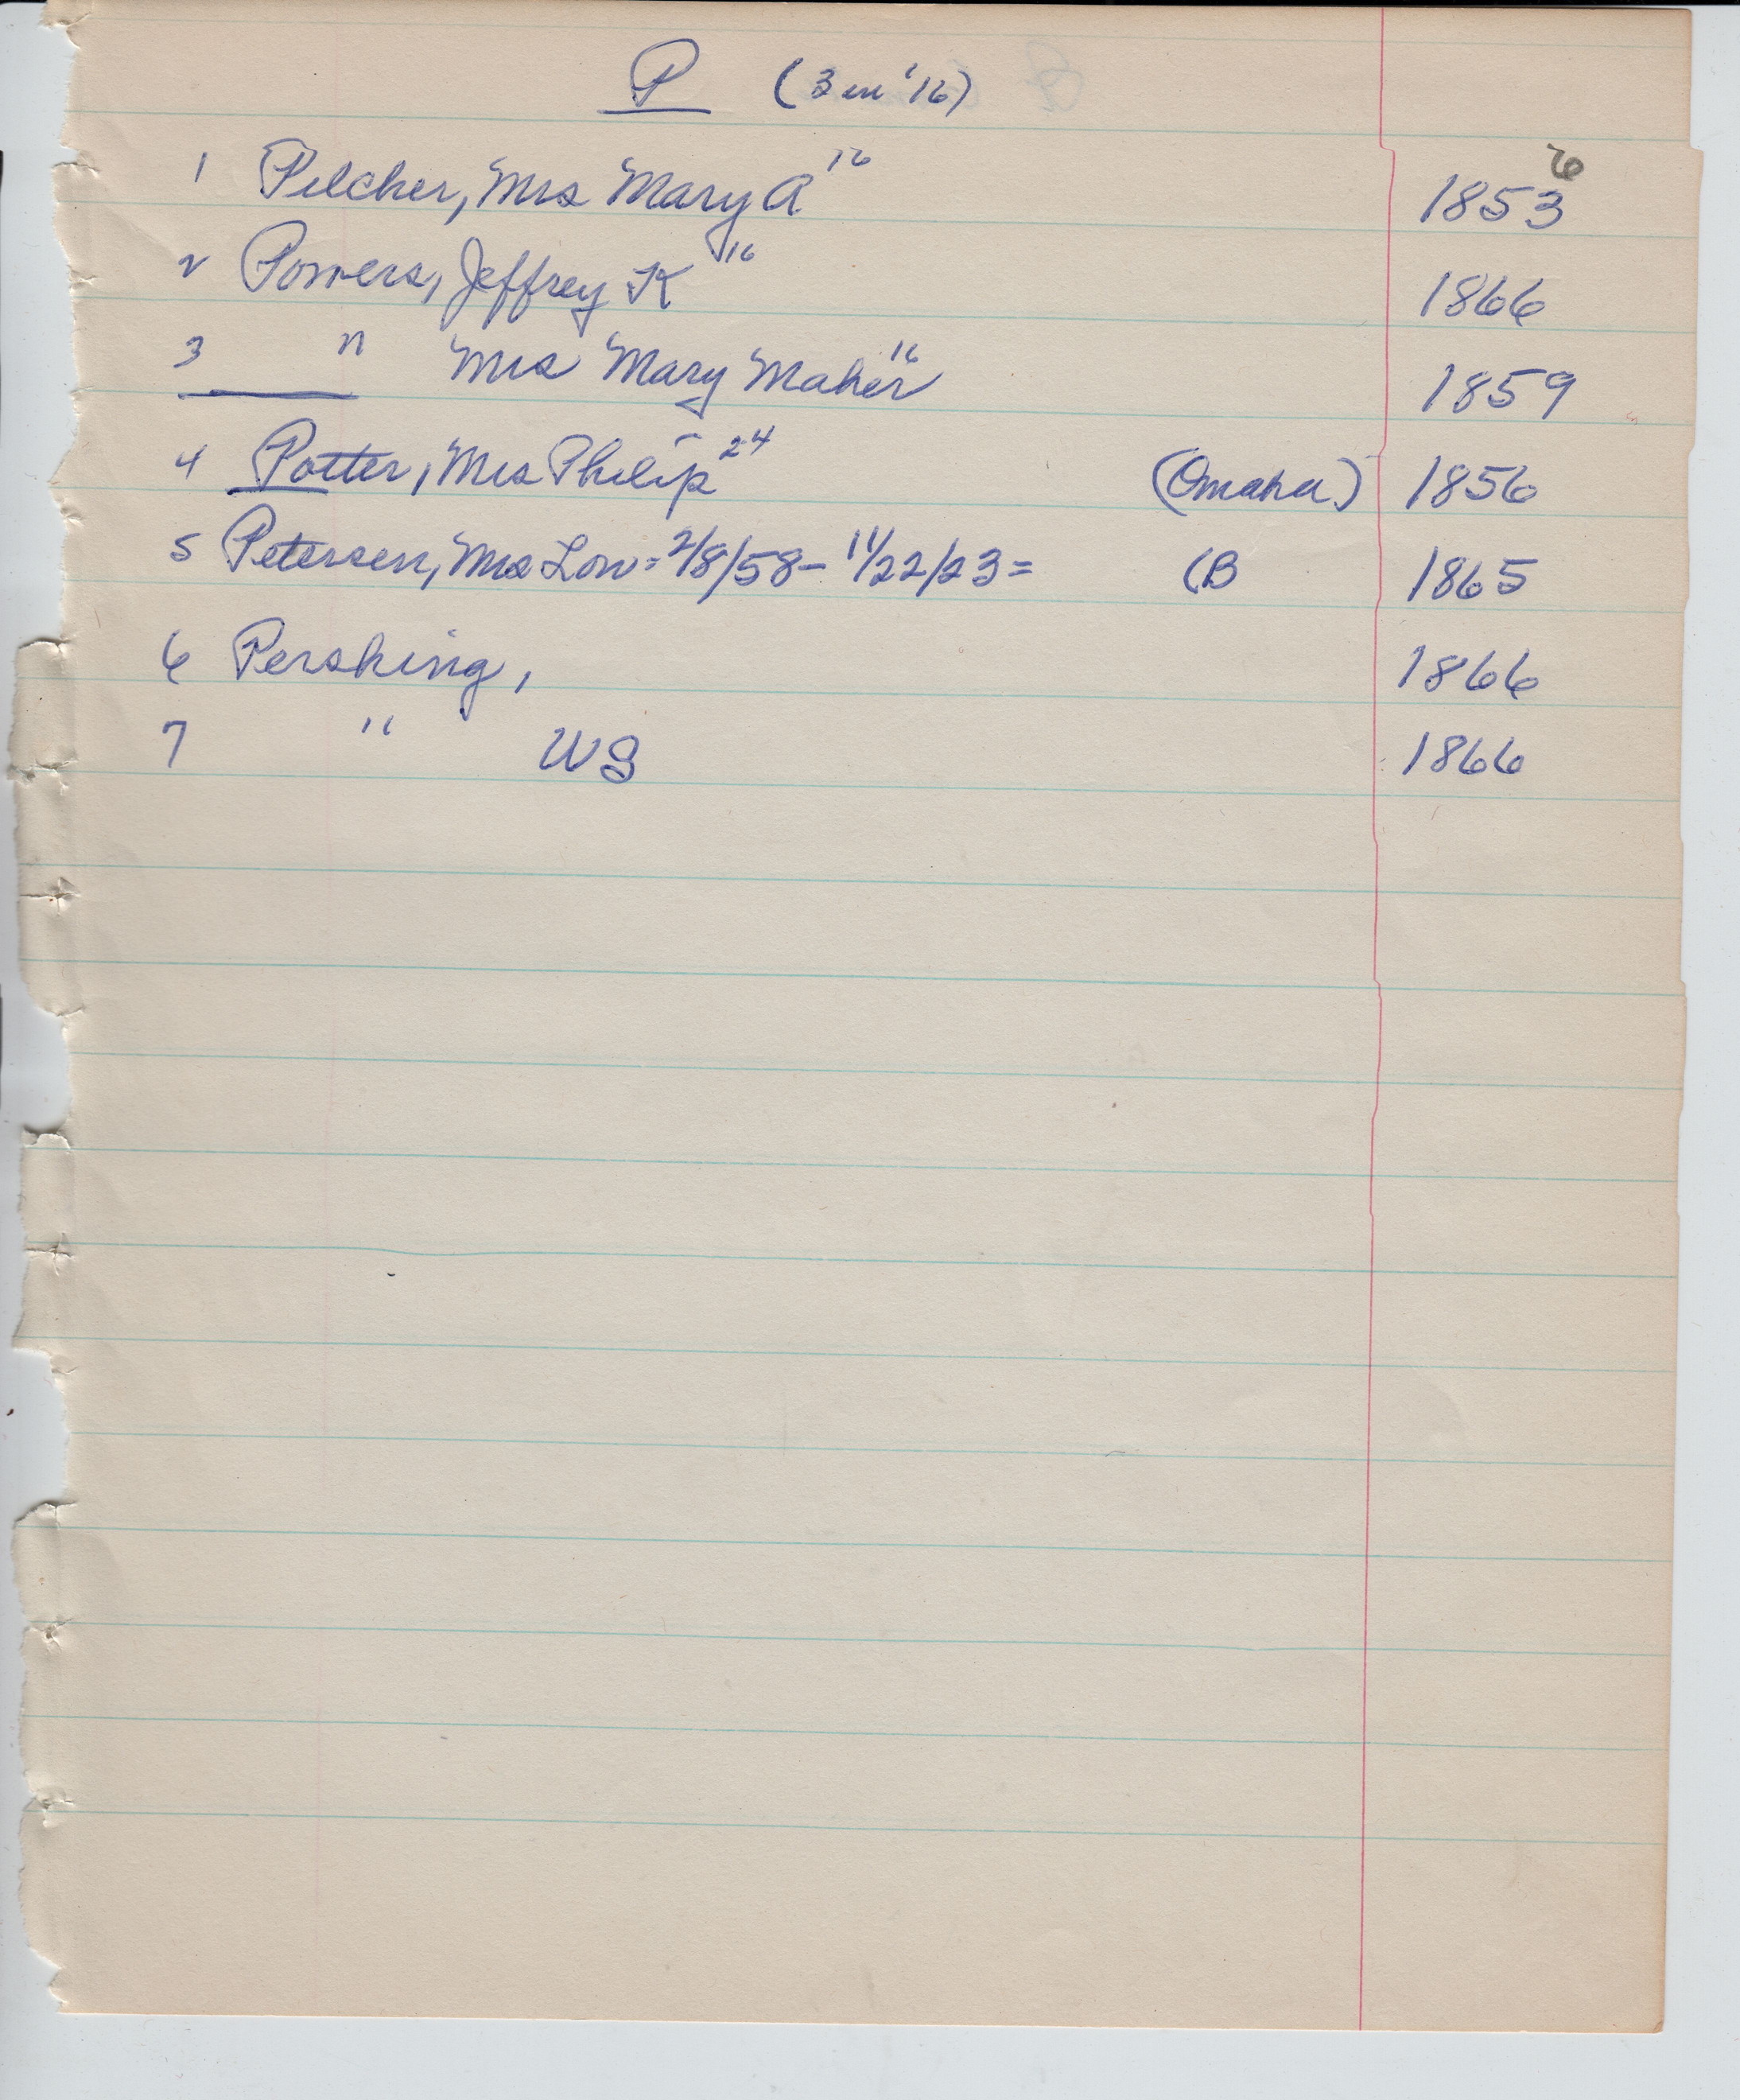 P (3 in '16)
1 Pilcher, Mrs Mary A 16 1853 6
2 Powers, Jeffrey K 16 1866
3 " Mrs Mary Maher 16 1859
4 Potter, Mrs Philip 24 (Omaha) 1856
5 Petersen, Mrs Lou = 2/8/58 - 11/22/23 = (B 1865
6 Pershing, 1866
7 " WS 1866